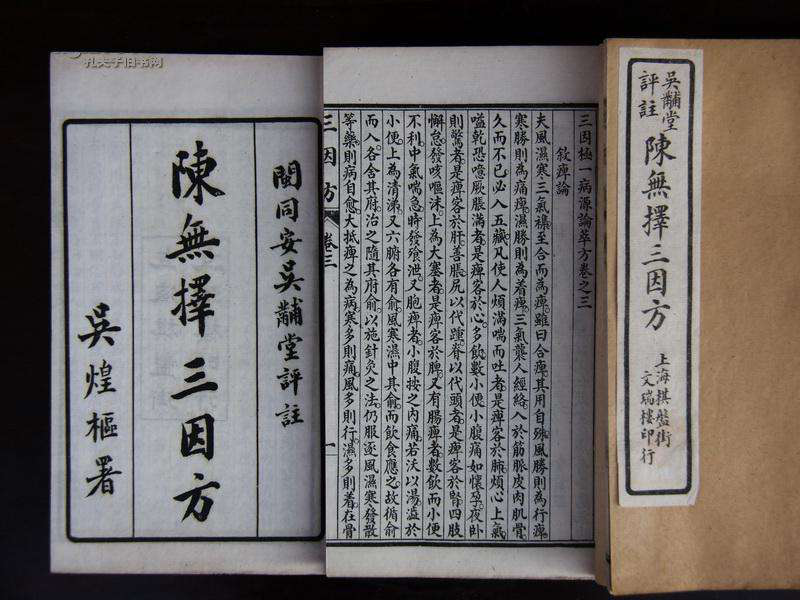 吳黼堂
評註
陳無擇三因方
上海棋盤街
文瑞樓印行
三因極一病源論萃方卷之三
敘痺論
夫風濕寒三氣襍至合而為痺雖曰合痺其用自殊風勝則為行痺
寒勝則為痛痺濕勝則為着痺三氣襲人經絡入於筋脈皮肉肌骨
久而不已必入五臟凡使人煩滿喘而吐者是痺客於肺煩心上氣
嗌乾恐噫厥脹滿者是痺客於心多飲數小便小腹痛如懷孕夜臥
則驚者是痺客於肝善脹尻以代踵脊以代頭者是痺客於腎四肢
懈怠發咳嘔沫上為大塞者是痺客於脾又有腸痺者數飲而小便
不利中氣喘急時發飧泄又胞痺者小腹按之內痛若沃以湯澁於
小便上為清涕又六腑各有俞風寒濕中其俞而飲食應之故循俞
而入各舍其府治之隨其府俞以施針灸之法仍服逐風濕寒發散
等藥則病自愈大抵痺之為病寒多則痛風多則行濕多則着在骨
三因方 卷三 一
閩同安吳黼堂評註
陳無擇三因方
吳煌樞署
孔夫子旧书网